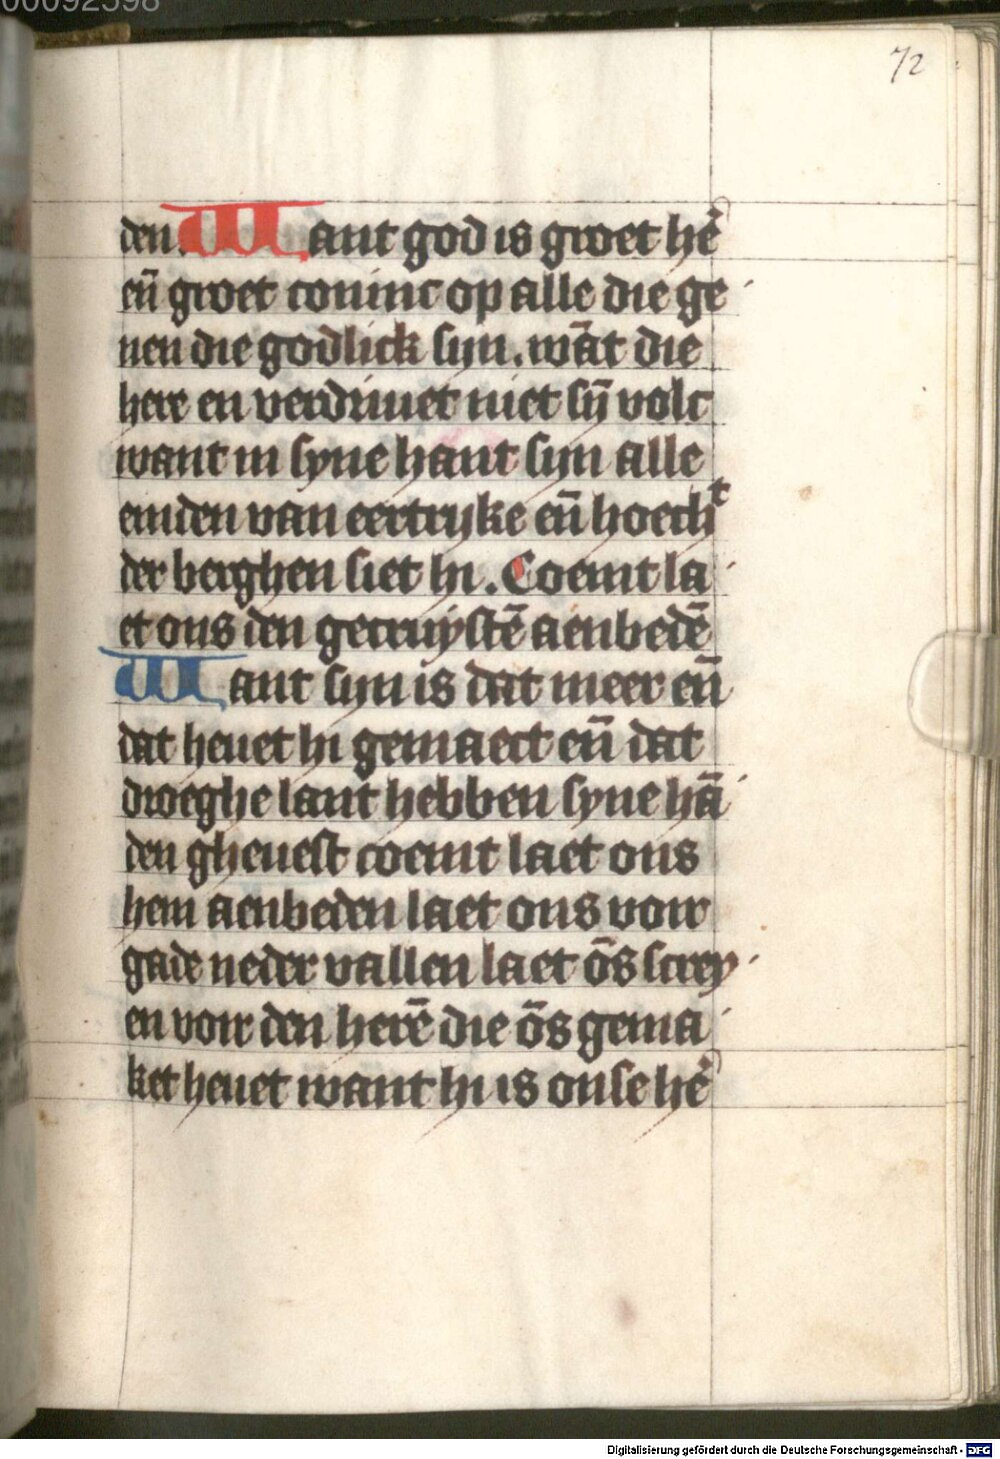 00092598
72
den. Want god is groet hē
en̄ groet coninc op alle die ge
nen die godlick sijn. wāt die
here en verdriuet niet sȳ volc
want in syne hant sijn alle
einden van eertryke en̄ hoecht
der berghen siet hi. Coemt la
et ons den gecruystē aenbedē
Want sijn is dat meer en̄
dat heuet hi gemaect en̄ dat
droeghe lant hebben syne hā
den gheuest coemt laet ons
hem aenbeden laet ons voir
gade neder vallen laet ōs screy
en voir den herē die ōs gema
ket heuet want hi is onse hē
Digitalisierung gefördert durch die Deutsche Forschungsgemeinschaft - DFG